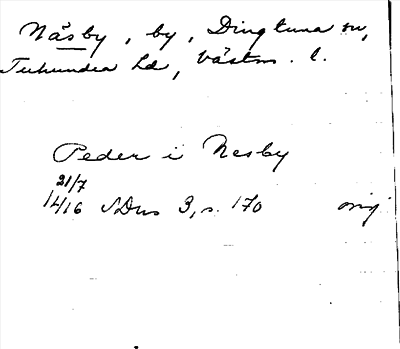 Näsby, by, Dingtuna sn,
Tuhundra hd, Västm. l.
Peder i Nesby
21/7
1416 SDns 3, s. 170 orig